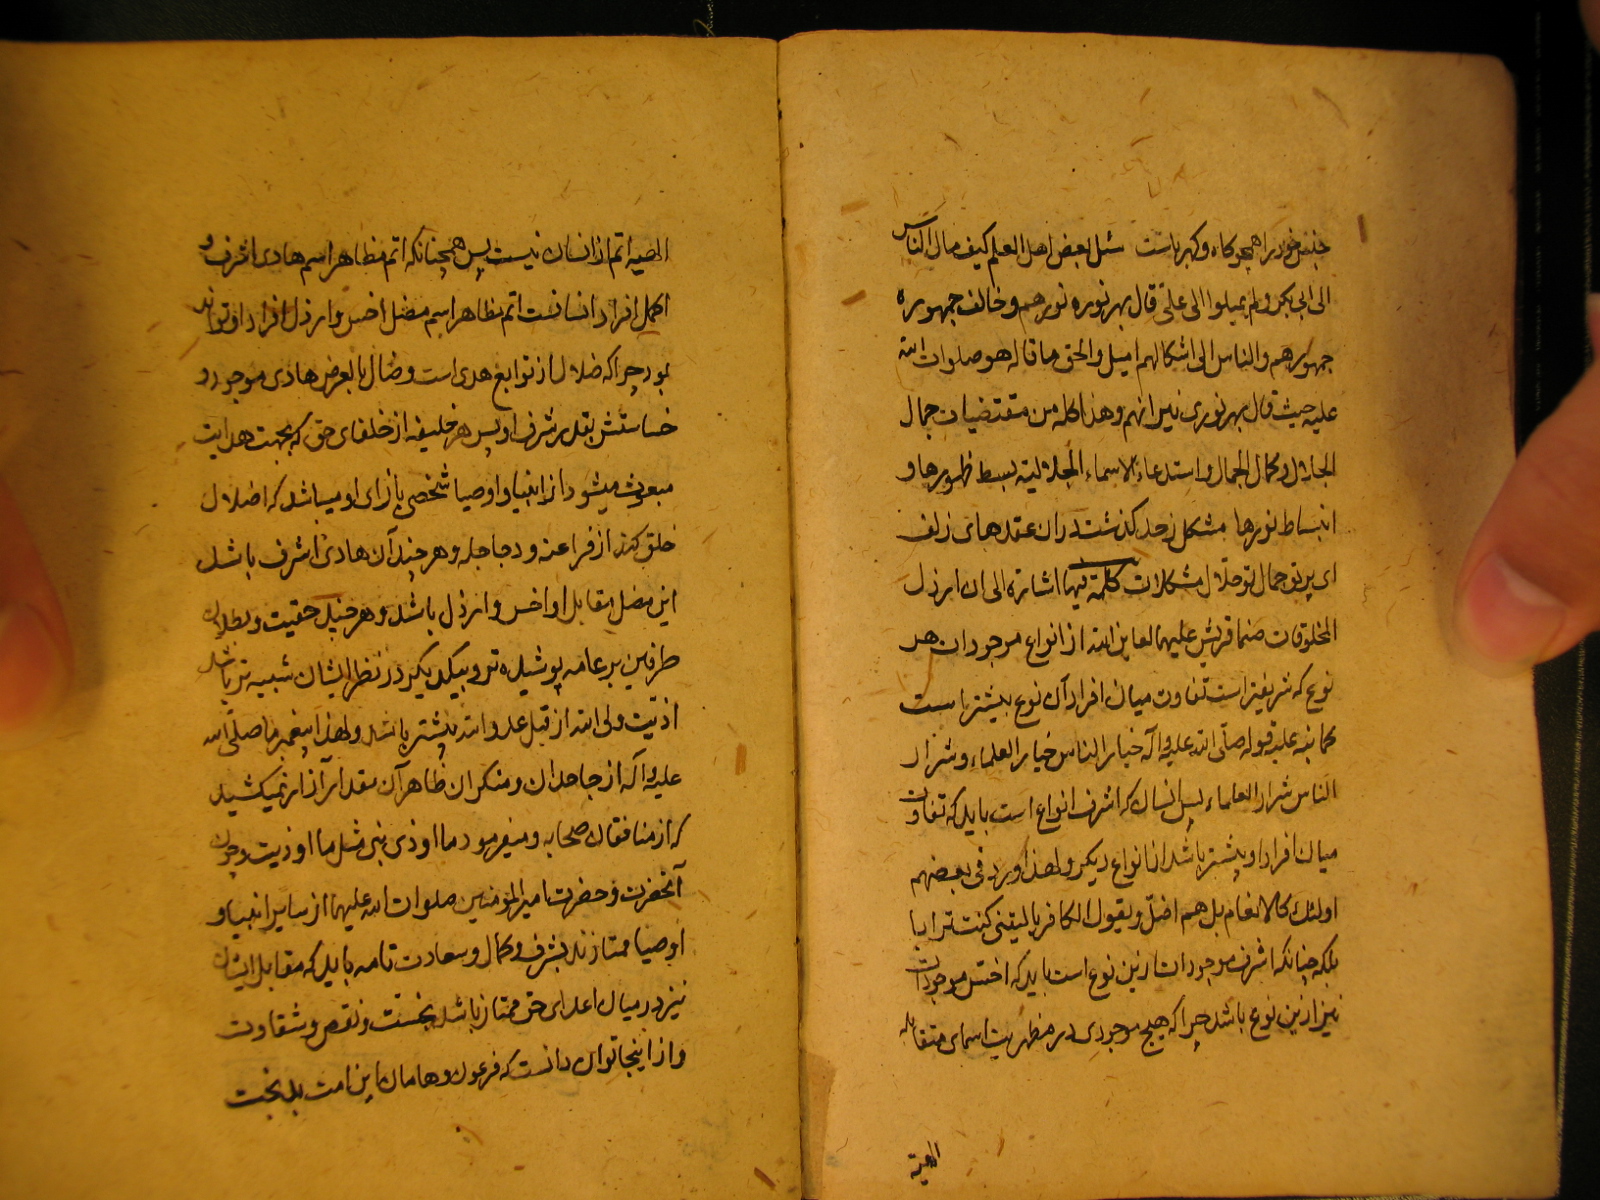 جنس خود را همچو کاه و کهرباست سئل بعض اهل العلم کیف مال الناس
الی ابی بکر ولم یمیلوا الی علی قال بهر نوره نورهم و خالف جمهوره
جمهورهم والناس الی اشکالهم امیل والحق ما قاله هو صلوات الله
علیه حیث قال بهر نوری نیرانهم وهذا کله من مقتضیات جمال
الجلال و کمال الجمال و استدعاء الاسماء الجلالیة بسط ظهورها و
انبساط نورها مشکل زحد گذشت دران عقدهای زلف
ای پرتو جمال تو حلال مشکلات کلمة فیها اشارة الی ان ارذل
المخلوقات صنما قریش علیهما لعاین الله از انواع موجودات هر
نوع که شریفتر است تفاوت میان افراد آن نوع بیشتر است
کما نبه علیه قوله صلی الله علیه وآله خیار الناس خیار العلماء و شرار
الناس شرار العلماء پس انسان که اشرف انواع است باید که تفاوت
میان افراد او بیشتر باشد از انواع دیگر ولهذا ورد فی بعضهم
اولئک کالانعام بل هم اضل و یقول الکافر یا لیتنی کنت ترابا
بلکه چنانکه اشرف موجودات ازین نوع است باید که اخس موجودات
نیز ازین نوع باشد چرا که هیچ موجودی در مظهریت اسمای متقابله
الهیة
الهیه اتم از انسان نیست پس همچنانکه اتم مظاهر اسم هادی اشرف و
اکمل افراد انسانست اتم مظاهر اسم مضل اخس و ارذل افراد او تواند
بود چرا که ضلال از توابع هدی است و ضال بالعرض هادی موجود و
خساستش بقدر شرف او پس هر خلیفه از خلفای حق که بجهت هدایت
مبعوث میشود از انبیا و اوصیا شخصی بازای او میباشد که اضلال
خلق کند از فراعنه و دجاجله و هر چند آن هادی اشرف باشد
این مضل مقابل او اخس و ارذل باشد و هر چند حقیت و بطلان
طرفین بر عامه پوشیده تر و بیکدیگر در نظر ایشان شبیه تر باشد
اذیت ولی الله از قبل عدو الله بیشتر باشد ولهذا پیغمبر ما صلی الله
علیه وآله از جاحدان و منکران ظاهر آن مقدار آزار نمیکشید
که از منافقان صحابه و میفرمود ما اوذی نبی مثل ما اوذیت و چون
آنحضرت و حضرت امیر المؤمنین صلوات الله علیهما از سایر انبیا و
اوصیا ممتازند بشرف و کمال و سعادت تامه باید که مقابل ایشان
نیز در میان اعدای حق ممتاز باشد بخست و نقص و شقاوت
و از اینجا توان دانست که فرعون و هامان این امت بدبخت